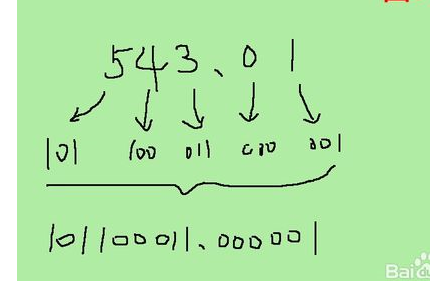 543.01
101 100 011 000 001
101100011.000001
Bai